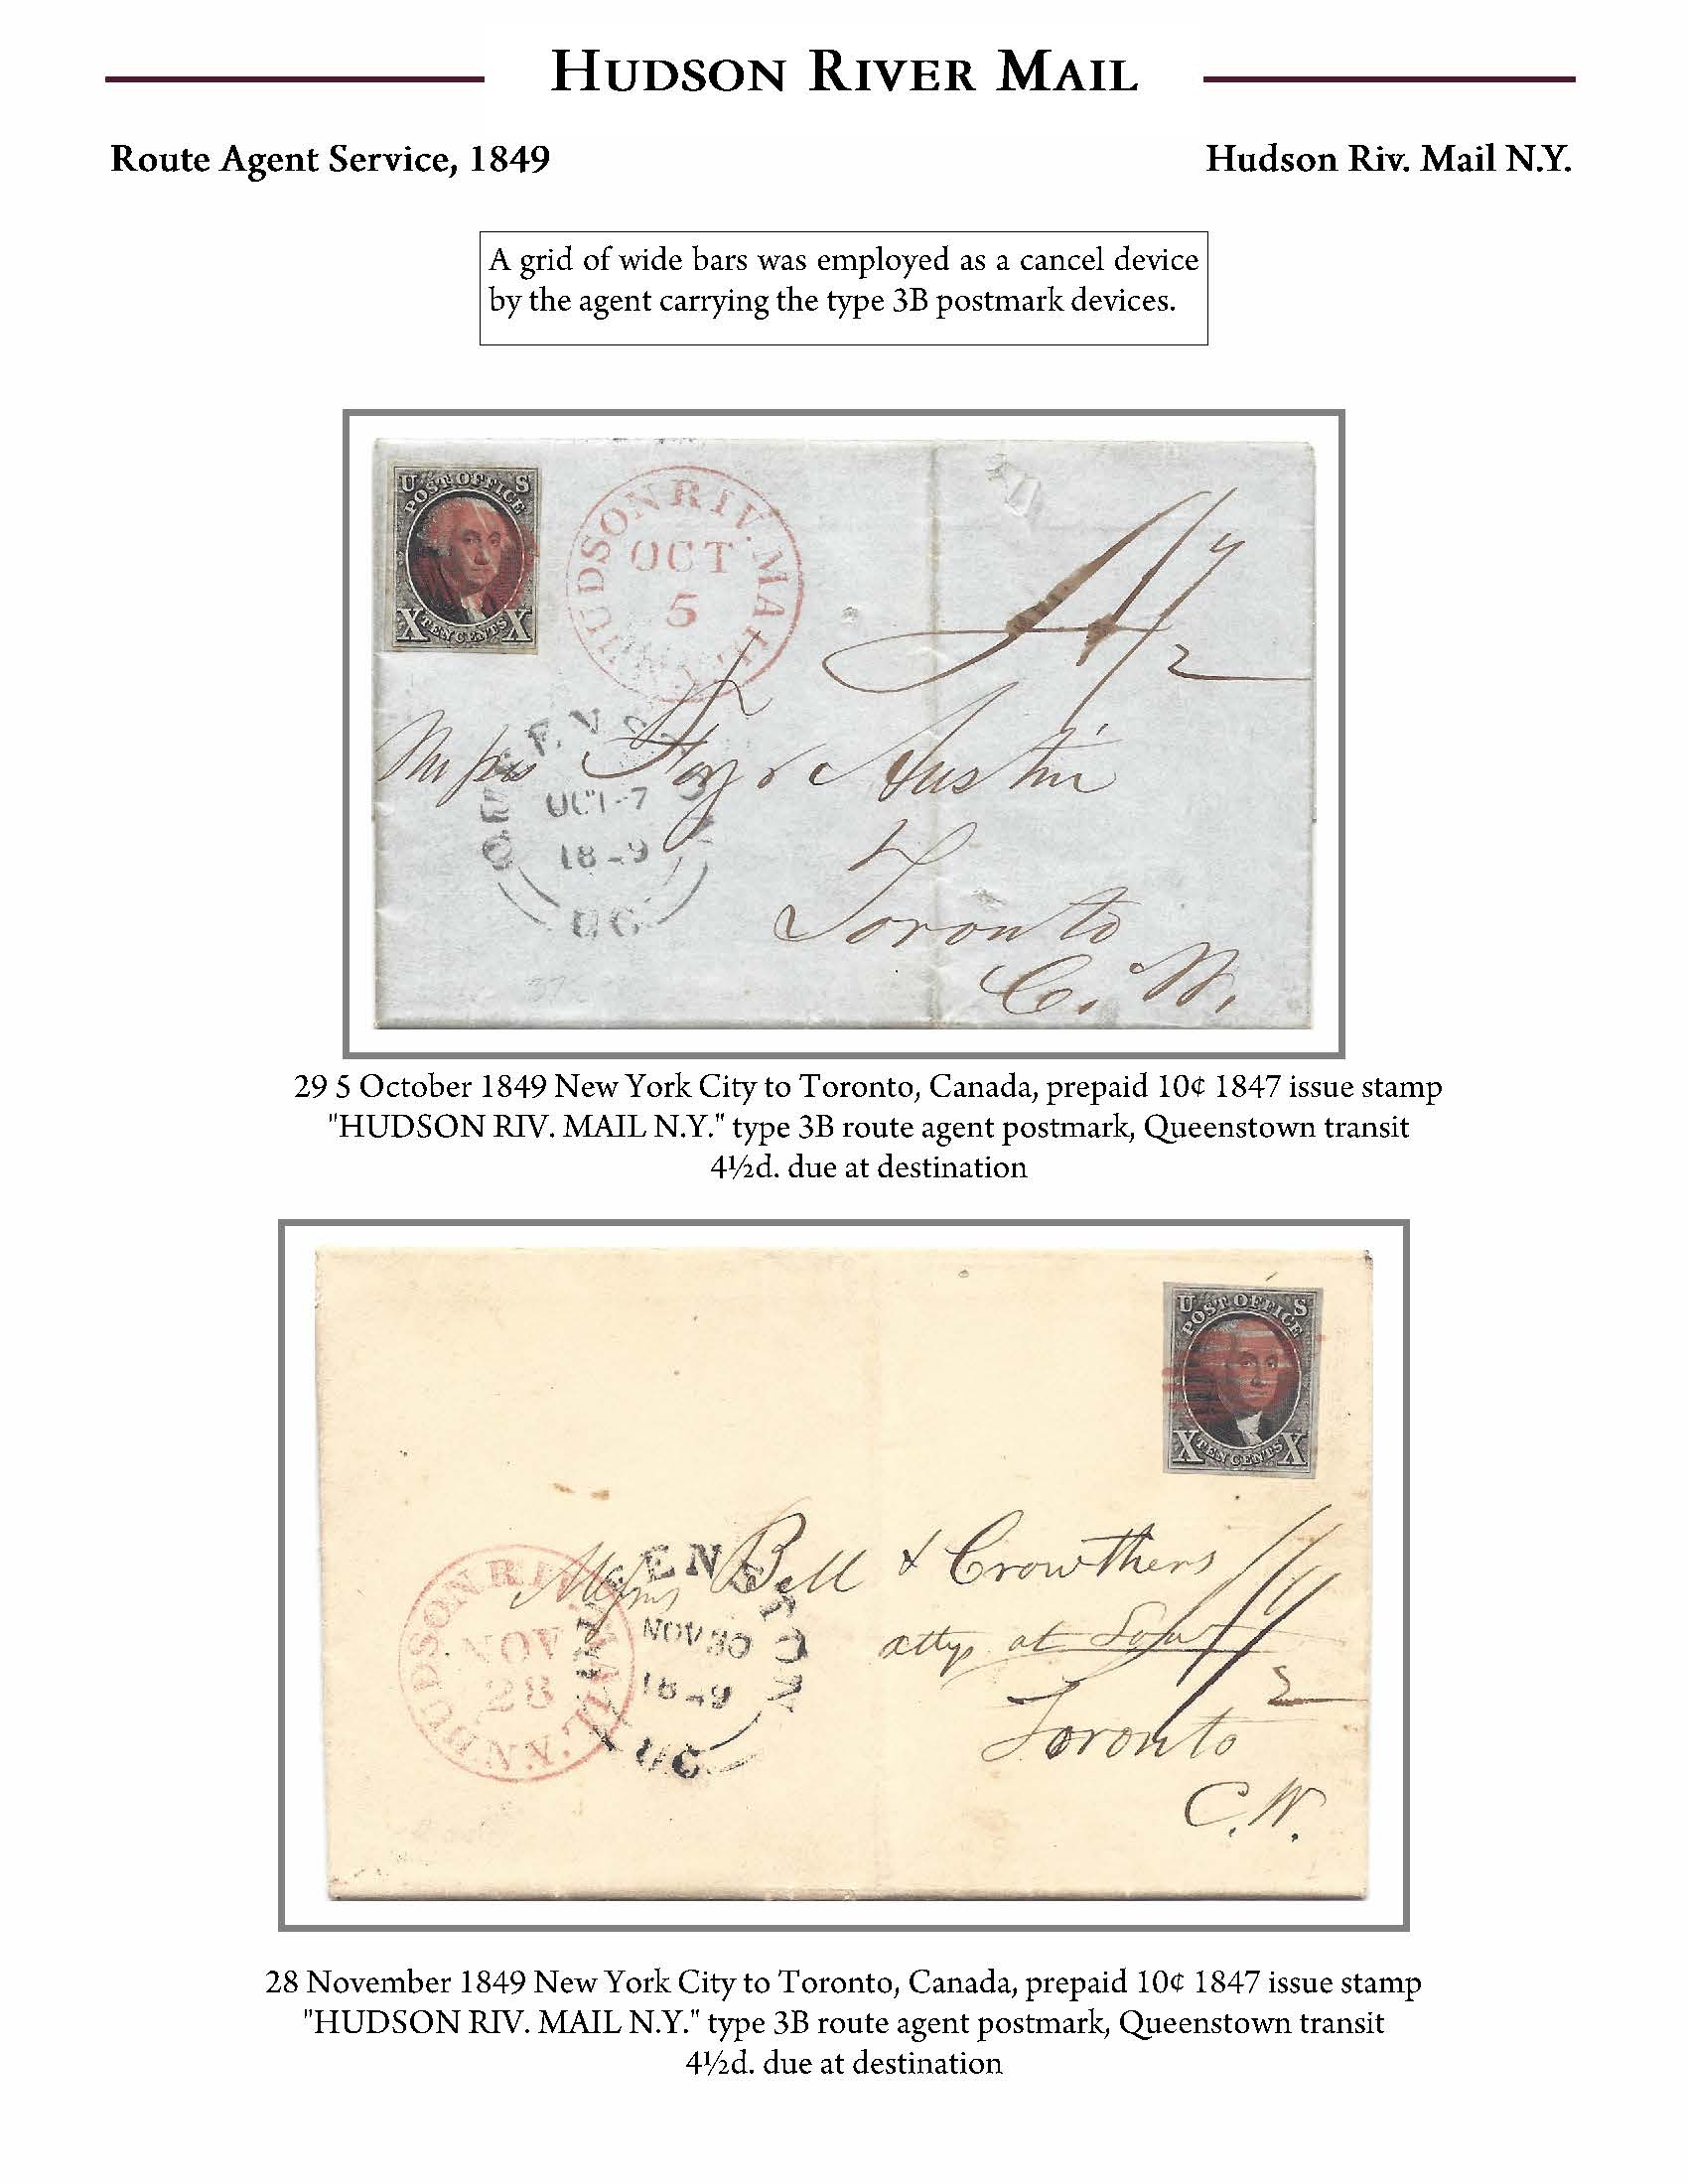 HUDSON RIVER MAIL
Route Agent Service, 1849
Hudson Riv. Mail N.Y.
A grid of wide bars was employed as a cancel device
by the agent carrying the type 3B postmark devices.
U POST OFFICE S
X TEN CENTS X
HUDSON RIV. MAIL
OCT
5
N.Y.
4½
Austin
OCT-7
U.C.
Toronto
C. W.
29 5 October 1849 New York City to Toronto, Canada, prepaid 10¢ 1847 issue stamp
"HUDSON RIV. MAIL N.Y." type 3B route agent postmark, Queenstown transit
4½d. due at destination
U POST OFFICE S
X TEN CENTS X
HUDSON RIV. MAIL
NOV
28
N.Y.
Bell & Crowthers
NOV 30
UC
attys at Law
4½
Toronto
C. W.
28 November 1849 New York City to Toronto, Canada, prepaid 10¢ 1847 issue stamp
"HUDSON RIV. MAIL N.Y." type 3B route agent postmark, Queenstown transit
4½d. due at destination